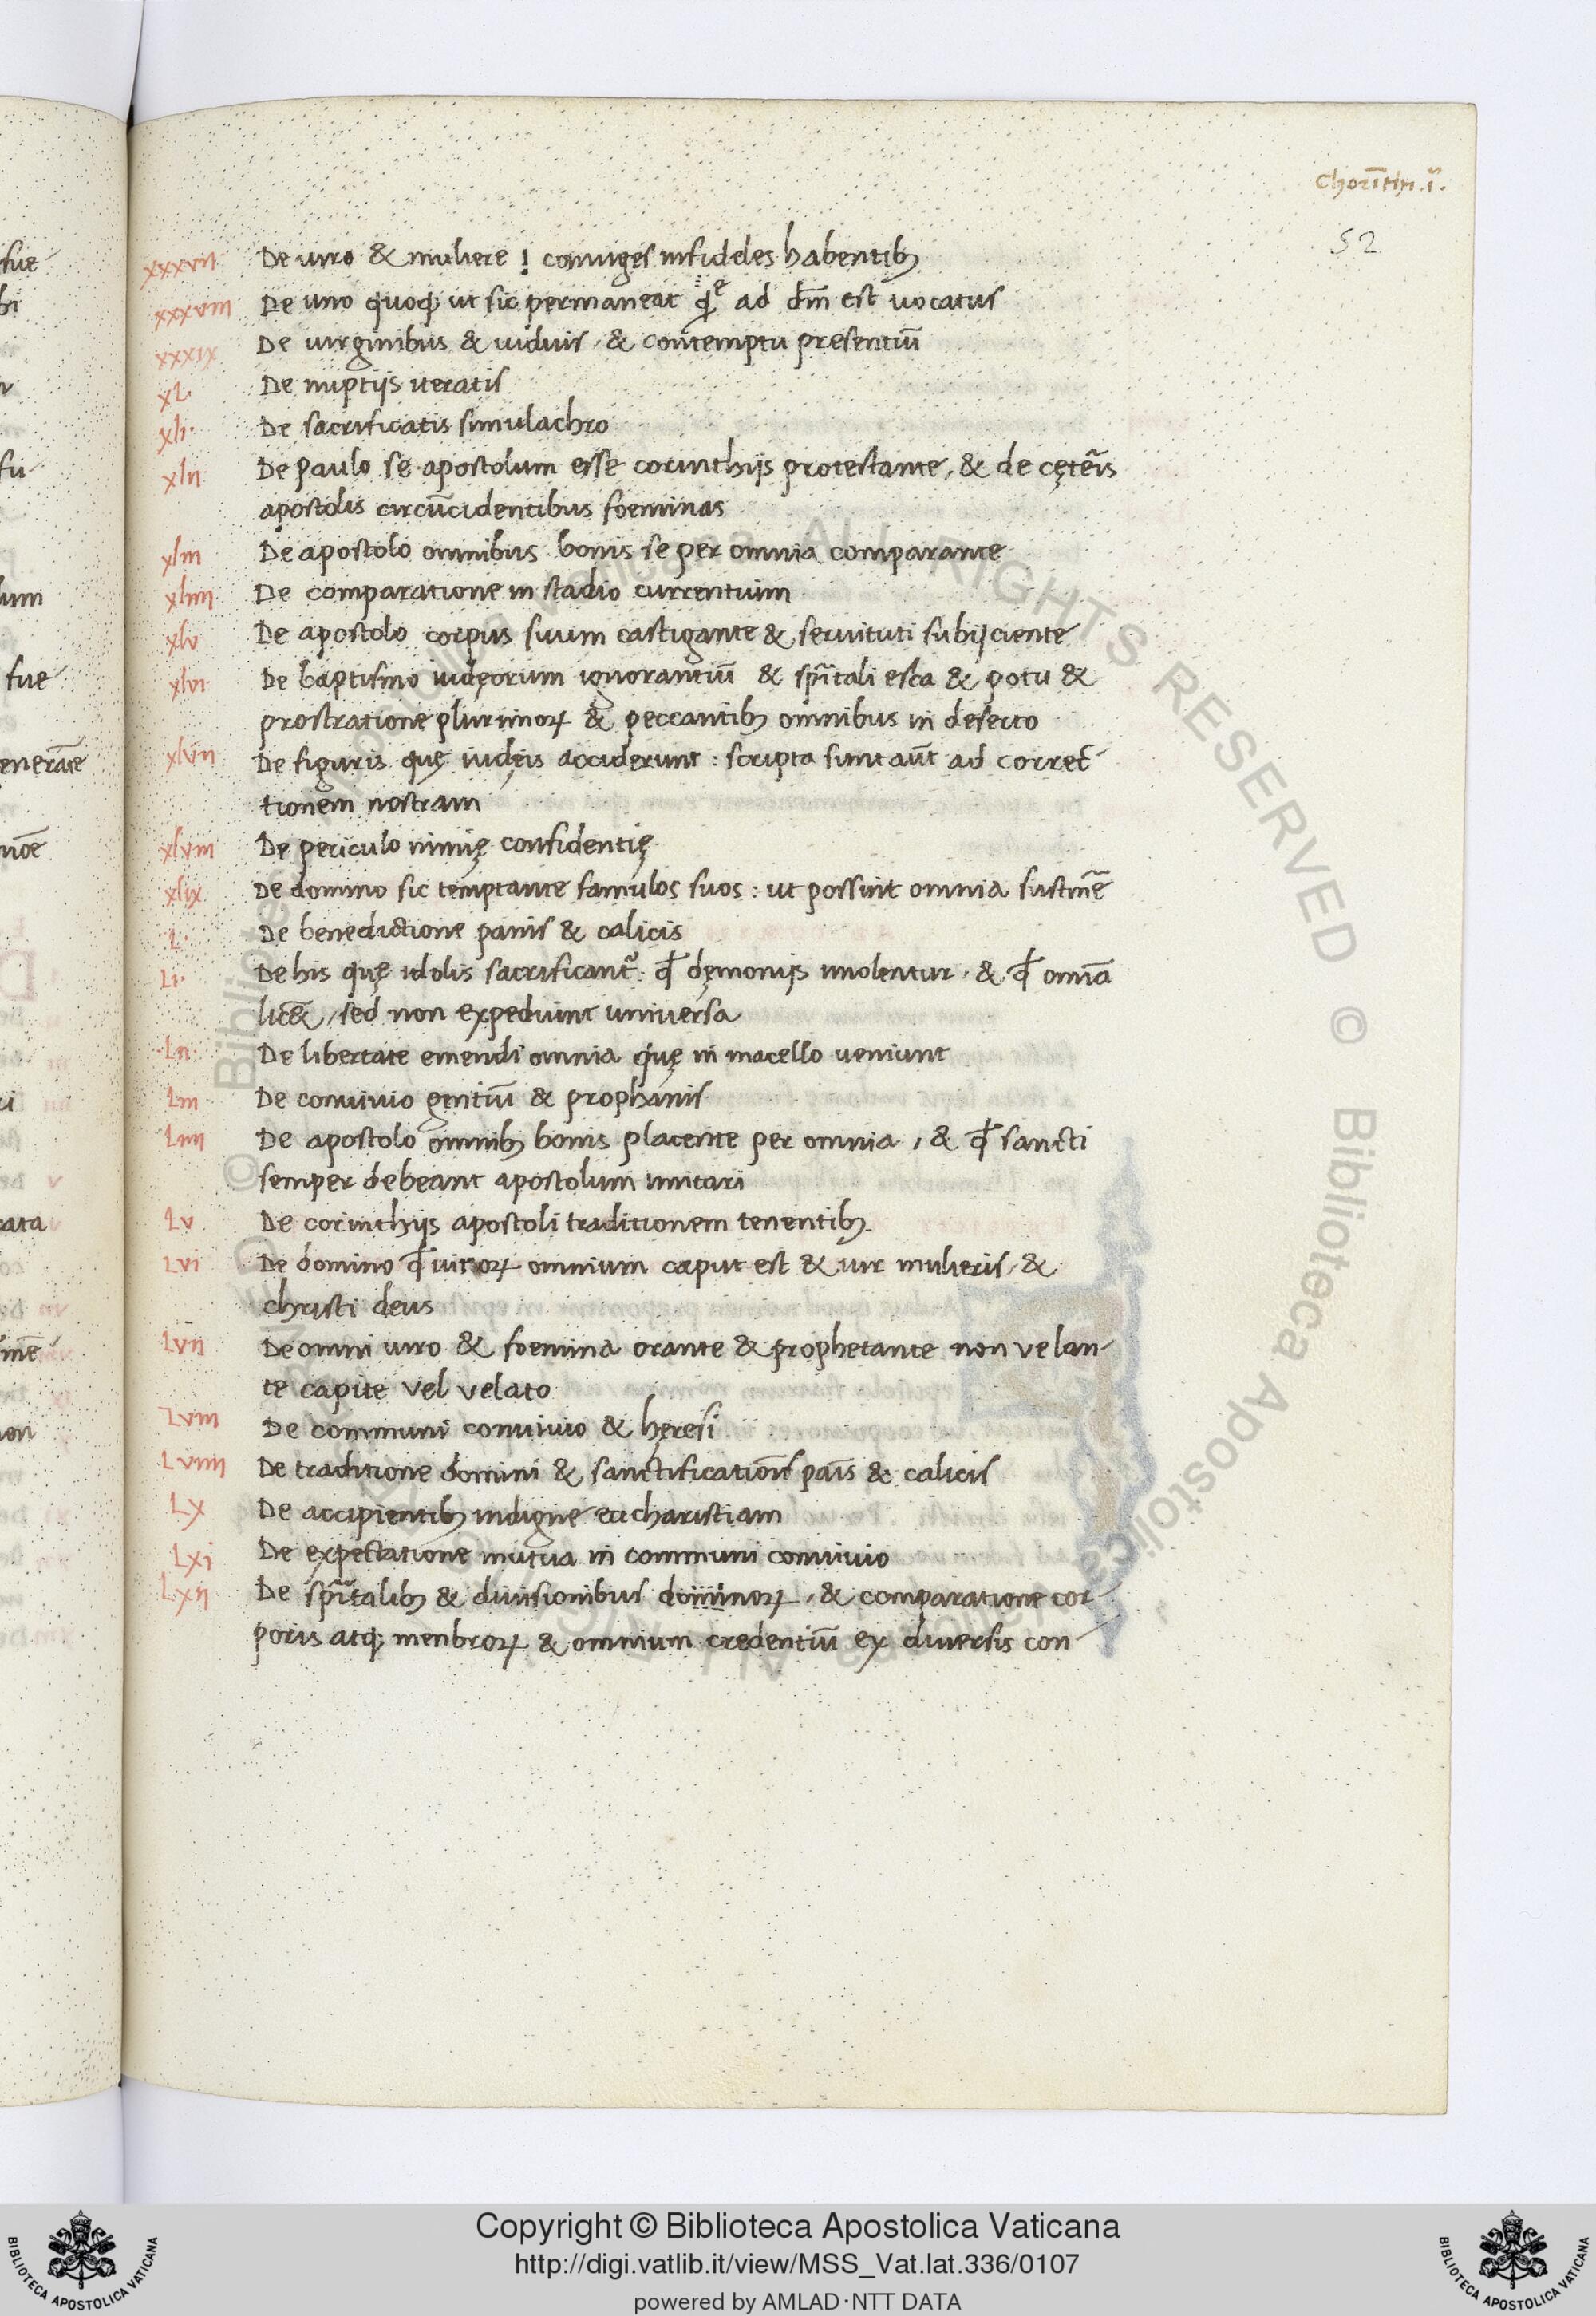 Chorīthi.i.
52
xxxvii De uiro & muliere ! coniuges infideles habentibꝫ
xxxviii De uno quoqꝫ ut sic permaneat ad dm̄ est uocatus
xxxix De uirginibus & uiduis, & contemptu presentiū
xl. De nuptijs iteratis
xli. De sacrificatis simulachro
xlii De paulo se apostolum esse corinthijs protestante, & de cęteris
apostolis circūcidentibus foeminas
xliii De apostolo omnibus bonis se per omnia comparante
xliiii De comparatione in stadio currentium
xlv De apostolo corpus suum castigante & seruituti subijciente
xlvi De baptismo iudęorum ignorantiū & spr̄itali esca & potu &
prostratione plurimoꝝ & peccantibꝫ omnibus in deserto
xlvii De figuris quę iudęis acciderunt : scripta sunt aūt ad correc̄
tionem nostram
xlviii De periculo nimię confidentię
xlix De domino sic temptante famulos suos : ut possint omnia sustinē
L. De benedictione panis & calicis
Li. De his quę idolis sacrificant᷑ : qđ dęmonijs imolentur, & qđ omīa
lic&, sed non expediunt universa
Lii De libertate emendi omnia quę in macello veniunt
Liii De conuiuio gentiū & prophanis
Liiii De apostolo omnibꝫ bonis placente per omnia, & qđ sancti
semper debeant apostolum imitari
Lv De corinthijs apostoli traditionem tenentibꝫ
Lvi De domino qđ uiroꝝ omnium caput est & uir mulieris, &
christi deus
Lvii De omni uiro & foemina orante & prophetante non velan-
te capite vel velato
Lviii De communi conuiuio & hęresi
Lviiii De traditione domini & sanctificatiōis pāis & calicis
Lx De accipientibꝫ indigne eucharistiam
Lxi De expectatione mutua in communi conuiuio
Lxii De spr̄italibꝫ & diuisionibus dominoꝝ, & comparatione cor-
poris atqꝫ menbroꝝ & omnium credentiū ex diuersis con-
Copyright © Biblioteca Apostolica Vaticana
http://digi.vatlib.it/view/MSS_Vat.lat.336/0107
powered by AMLAD·NTT DATA
BIBLIOTECA APOSTOLICA VATICANA
BIBLIOTECA APOSTOLICA VATICANA